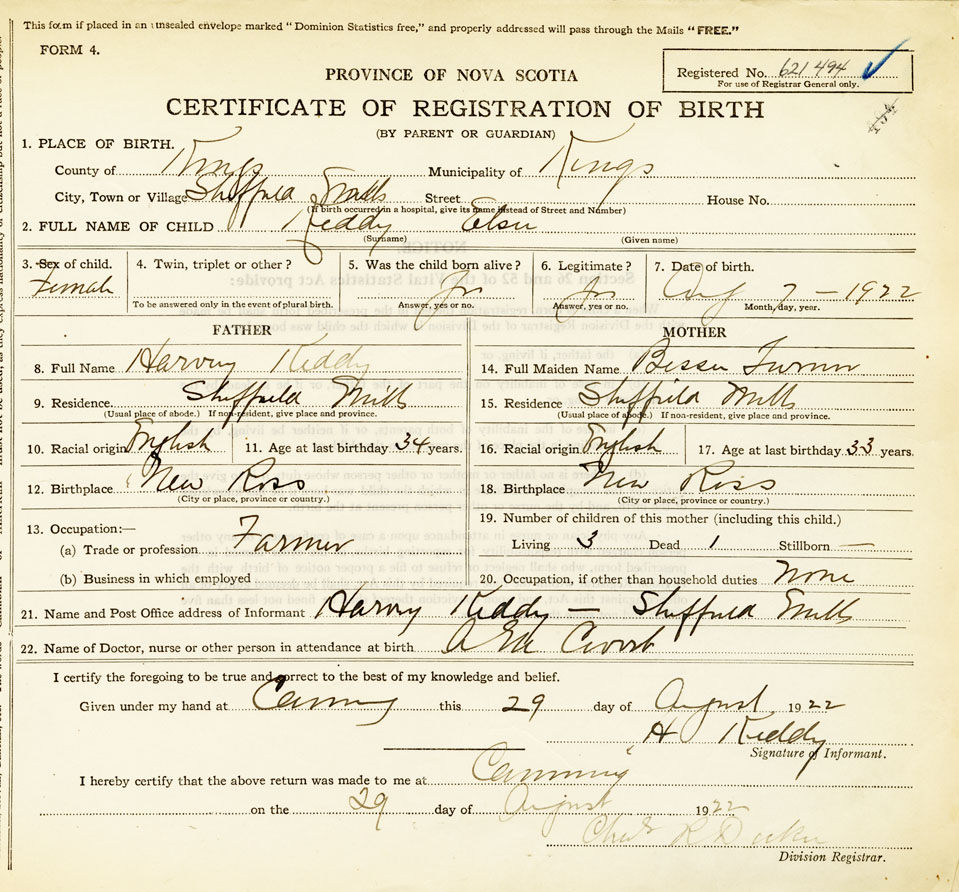 This form if placed in an unsealed envelope marked "Dominion Statistics free," and properly addressed will pass through the Mails "FREE."
FORM 4.
Registered No. 621 494
For use of Registrar General only.
PROVINCE OF NOVA SCOTIA
CERTIFICATE OF REGISTRATION OF BIRTH
(BY PARENT OR GUARDIAN)
1. PLACE OF BIRTH.
County of Kings Municipality of Kings
City, Town or Village Sheffield Mills Street House No.
(If birth occurred in a hospital, give its name instead of Street and Number)
2. FULL NAME OF CHILD Keddy Elsie
(Surname) (Given name)
3. Sex of child. 4. Twin, triplet or other? 5. Was the child born alive? 6. Legitimate? 7. Date of birth.
Female Yes Yes Aug 7 - 1922
To be answered only in the event of plural birth. Answer, yes or no. Answer, yes or no. Month, day, year.
FATHER MOTHER
8. Full Name Harvey Keddy 14. Full Maiden Name Bessie Turner
9. Residence. Sheffield Mills 15. Residence Sheffield Mills
(Usual place of abode.) If non-resident, give place and province. (Usual place of abode.) If non-resident, give place and province.
10. Racial origin English 11. Age at last birthday 34 years. 16. Racial origin English 17. Age at last birthday 33 years.
12. Birthplace New Ross 18. Birthplace New Ross
(City or place, province or country.) (City or place, province or country.)
13. Occupation:— 19. Number of children of this mother (including this child.)
(a) Trade or profession Farmer Living 3 Dead 1 Stillborn —
(b) Business in which employed 20. Occupation, if other than household duties None
21. Name and Post Office address of Informant Harvey Keddy — Sheffield Mills
22. Name of Doctor, nurse or other person in attendance at birth
I certify the foregoing to be true and correct to the best of my knowledge and belief.
Given under my hand at Canning this 29 day of August 1922
H Keddy
Signature of Informant.
I hereby certify that the above return was made to me at Canning
on the 29 day of August 1922
Division Registrar.